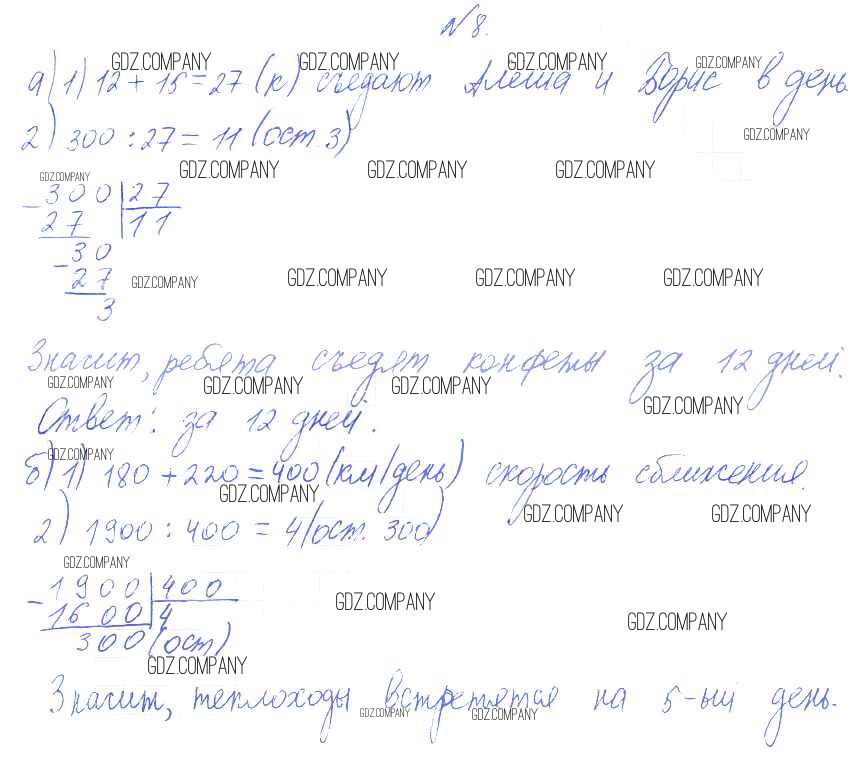 №8.
GDZ.COMPANY GDZ.COMPANY GDZ.COMPANY GDZ.COMPANY
а) 1) 12 + 15 = 27 (к) съедают Алеша и Борис в день
2) 300 : 27 = 11 (ост. 3)
GDZ.COMPANY
GDZ.COMPANY GDZ.COMPANY GDZ.COMPANY GDZ.COMPANY
- 300 27
27 11
- 30
27
GDZ.COMPANY GDZ.COMPANY GDZ.COMPANY GDZ.COMPANY
3
Значит, ребята съедят конфеты за 12 дней.
GDZ.COMPANY GDZ.COMPANY GDZ.COMPANY GDZ.COMPANY
Ответ: за 12 дней.
GDZ.COMPANY
б) 1) 180 + 220 = 400 (км/день) скорость сближения.
GDZ.COMPANY GDZ.COMPANY GDZ.COMPANY
2) 1900 : 400 = 4 (ост. 300)
GDZ.COMPANY
- 1900 400
1600 4
GDZ.COMPANY GDZ.COMPANY
300 (ост)
GDZ.COMPANY
Значит, теплоходы встретятся на 5-ый день.
GDZ.COMPANY GDZ.COMPANY